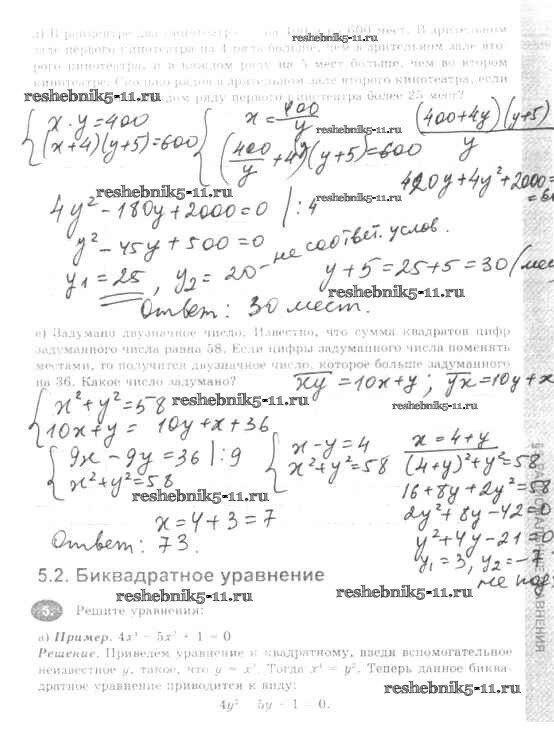 д) В райцентре два кинотеатра 400 и 600 мест. В зрительном
зале первого кинотеатра на 4 ряда больше, чем в зрительном зале вто-
рого кинотеатра, и в каждом ряду на 5 мест больше, чем во втором
кинотеатре. Сколько рядов в зрительном зале второго кинотеатра, если
ряду первого кинотеатра более 25 мест?
reshebnik5-11.ru
reshebnik5-11.ru
x·y=400
(x+4)(y+5)=600
x=400/y
(400/y+4)(y+5)=600
(400+4y)(y+5)
y
reshebnik5-11.ru
reshebnik5-11.ru
420y+4y²+2000=
4y²-180y+2000=0 |:4
y²-45y+500=0
y₁=25, y₂=20 - не соответ. услов.
y+5=25+5=30 (мес
reshebnik5-11.ru
Ответ: 30 мест.
е) Задумано двузначное число. Известно, что сумма квадратов цифр
задуманного числа равна 58. Если цифры задуманного числа поменять
местами, то получится двузначное число, которое больше задуманного
на 36. Какое число задумано?
xy=10x+y; yx=10y+x
x²+y²=58
10x+y= 10y+x+36
reshebnik5-11.ru
reshebnik5-11.ru
9x-9y=36 |:9
x²+y²=58
x-y=4
x²+y²=58
x=4+y
(4+y)²+y²=58
16+8y+2y²=58
2y²+8y-42=0
y²+4y-21=0
y₁=3, y₂=-7
reshebnik5-11.ru
x=4+3=7
Ответ: 73.
5.2. Биквадратное уравнение
reshebnik5-11.ru
reshebnik5-11.ru
5. Решите уравнения:
а) Пример. 4x⁴ - 5x² + 1 = 0
Решение. Приведем уравнение к квадратному, введя вспомогательное
неизвестное y, такое, что y = x². Тогда x⁴ = y². Теперь данное биква-
дратное уравнение приводится к виду:
reshebnik5-11.ru
4y² - 5y + 1 = 0.